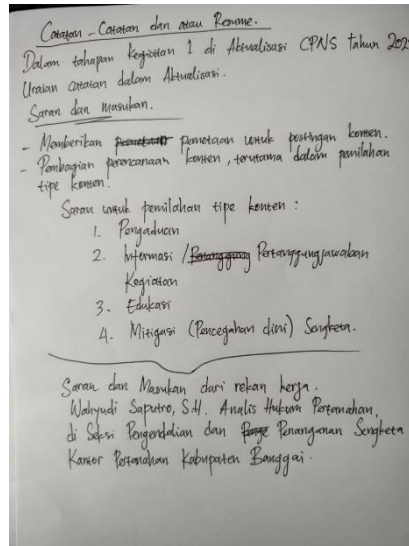 Catatan-Catatan dan atau Resume.
Dalam tahapan Kegiatan 1 di Aktualisasi CPNS tahun 202
Uraian catatan dalam Aktualisasi.
Saran dan masukan.
- Memberikan pemetaan untuk postingan konten.
- Pembagian perencanaan konten, terutama dalam pemilahan
tipe konten.
Saran untuk pemilahan tipe konten :
1. Pengaduan
2. Informasi / Pertanggungjawaban
Kegiatan
3. Edukasi
4. Mitigasi (Pencegahan dini) Sengketa.
Saran dan Masukan dari rekan kerja.
Wahyudi Saputro, S.H. Analis Hukum Pertanahan,
di Seksi Pengendalian dan Penanganan Sengketa
Kantor Pertanahan Kabupaten Banggai.